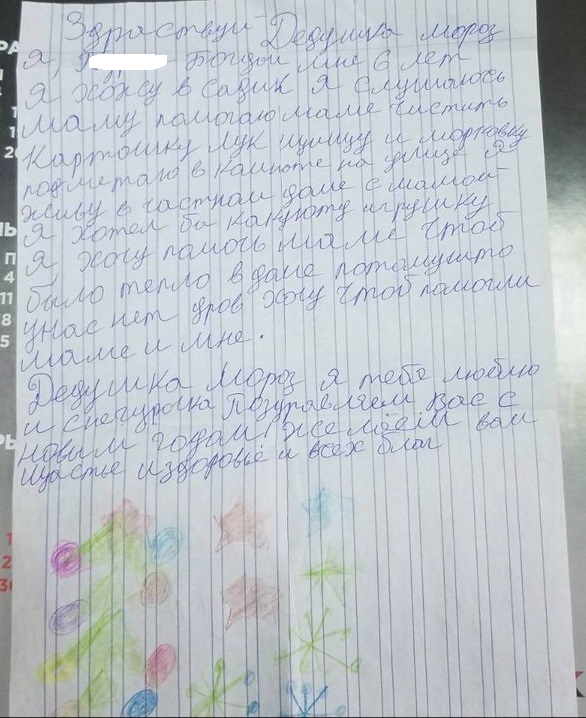 Здраствуй Дедушка мороз
Я, Богдан мне 6 лет
Я хожу в садик Я слушаюсь
маму помогаю маме чистить
картошку лук пицицу и морковку
подметаю в комноте на улице Я
живу в частном доме с мамой
Я хотел бы какуюту игрушку
Я, хочу помочь маме чтоб
было тепло в доме потомушто
унас нет дров хочу чтоб помогли
маме и мне.
Дедушка Мороз я тебя люблю
и снегурочка Поздравляем вас с
новым годом! желаем вам
щастье издоровье и всех благ